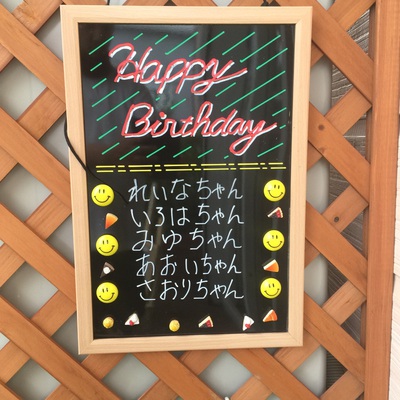 Happy
Birthday
れいなちゃん
いろはちゃん
みゆちゃん
あおいちゃん
さおりちゃん